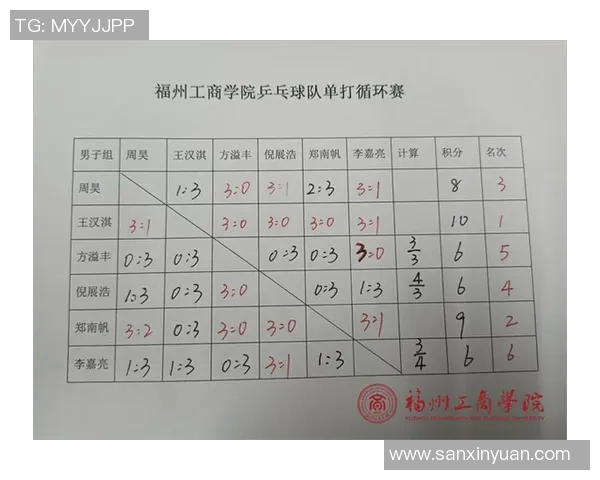 TG: MYYJJPP
福州工商学院乒乓球队单打循环赛
男子组 周昊 王汉淇 方溢丰 倪展浩 郑南帆 李嘉亮 计算 积分 名次
周昊 1:3 3:0 3:1 2:3 3:1 8 3
王汉淇 3:1 3:0 3:0 3:0 3:1 10 1
方溢丰 0:3 0:3 0:3 0:3 3:0 3/3 6 5
倪展浩 1:3 0:3 3:0 0:3 1:3 4/3 6 4
郑南帆 3:2 0:3 3:0 3:0 3:1 9 2
李嘉亮 1:3 1:3 0:3 3:1 1:3 3/4 6 6
福州工商学院
www.sanxinyuan.com